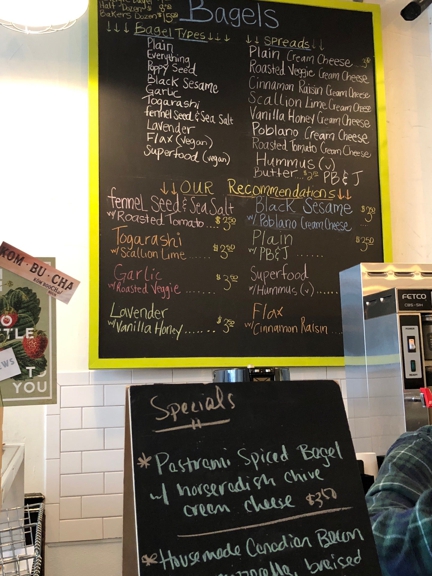 Half Dozen
Bakers Dozen
Bagels
Bagel Types
Plain
Everything
Poppy Seed
Black Sesame
Garlic
Togarashi
fennel Seed & Sea Salt
Lavender
Flax (vegan)
Superfood (vegan)
Spreads
Plain Cream Cheese
Roasted Veggie Cream Cheese
Cinnamon Raisin Cream Cheese
Scallion Lime Cream Cheese
Vanilla Honey Cream Cheese
Poblano Cream Cheese
Roasted Tomato Cream Cheese
Hummus (v)
Butter PB & J
OUR Recommendations
fennel Seed & Sea Salt
w/ Roasted Tomato
Togarashi
w/ Scallion Lime
Garlic
w/ Roasted Veggie
Lavender
w/ Vanilla Honey
Black Sesame
w/ Poblano Cream Cheese
Plain
w/ PB & J
Superfood
w/ Hummus (v)
Flax
w/ Cinnamon Raisin
KOM·BU·CHA
YOU
FETCO
Specials
* Pastrami Spiced Bagel
w/ horseradish chive
cream cheese
* Housemade Canadian Bacon
braised